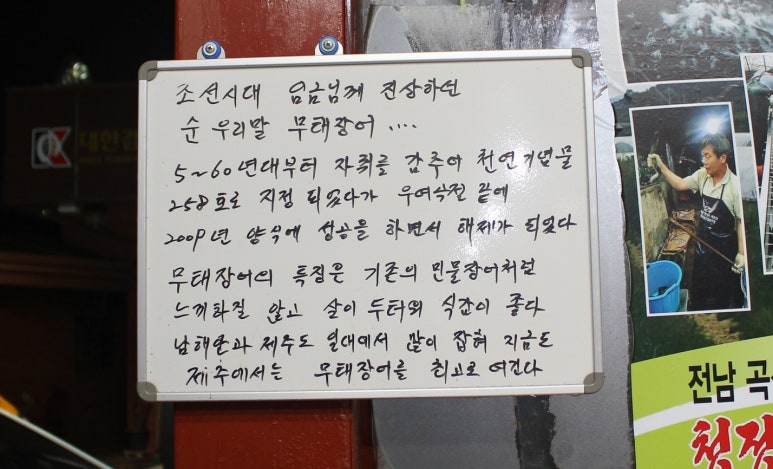 조선시대 임금님께 진상하던
순 우리말 무태장어....
5~60년대부터 자취를 감추어 천연기념물
258호로 지정 되었다가 우여곡절 끝에
2009년 양식에 성공을 하면서 해제가 되었다
무태장어의 특징은 기존의 민물장어처럼
느끼하질 않고 살이 두터워 식감이 좋다
남해안과 제주도 일대에서 많이 잡혀 지금도
제주에서는 무태장어를 최고로 여긴다
대한
전남 곡